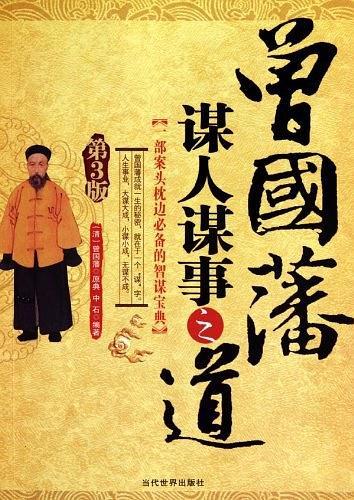 曾國藩
谋人谋事之道
【一部案头枕边必备的智谋宝典】
曾国藩成就一生的秘密，就在于一个“谋”字。
人生事业，大谋大成，小谋小成，无谋不成。
第3版
【清】曾国藩◎原典 中石◎编著
当代世界出版社